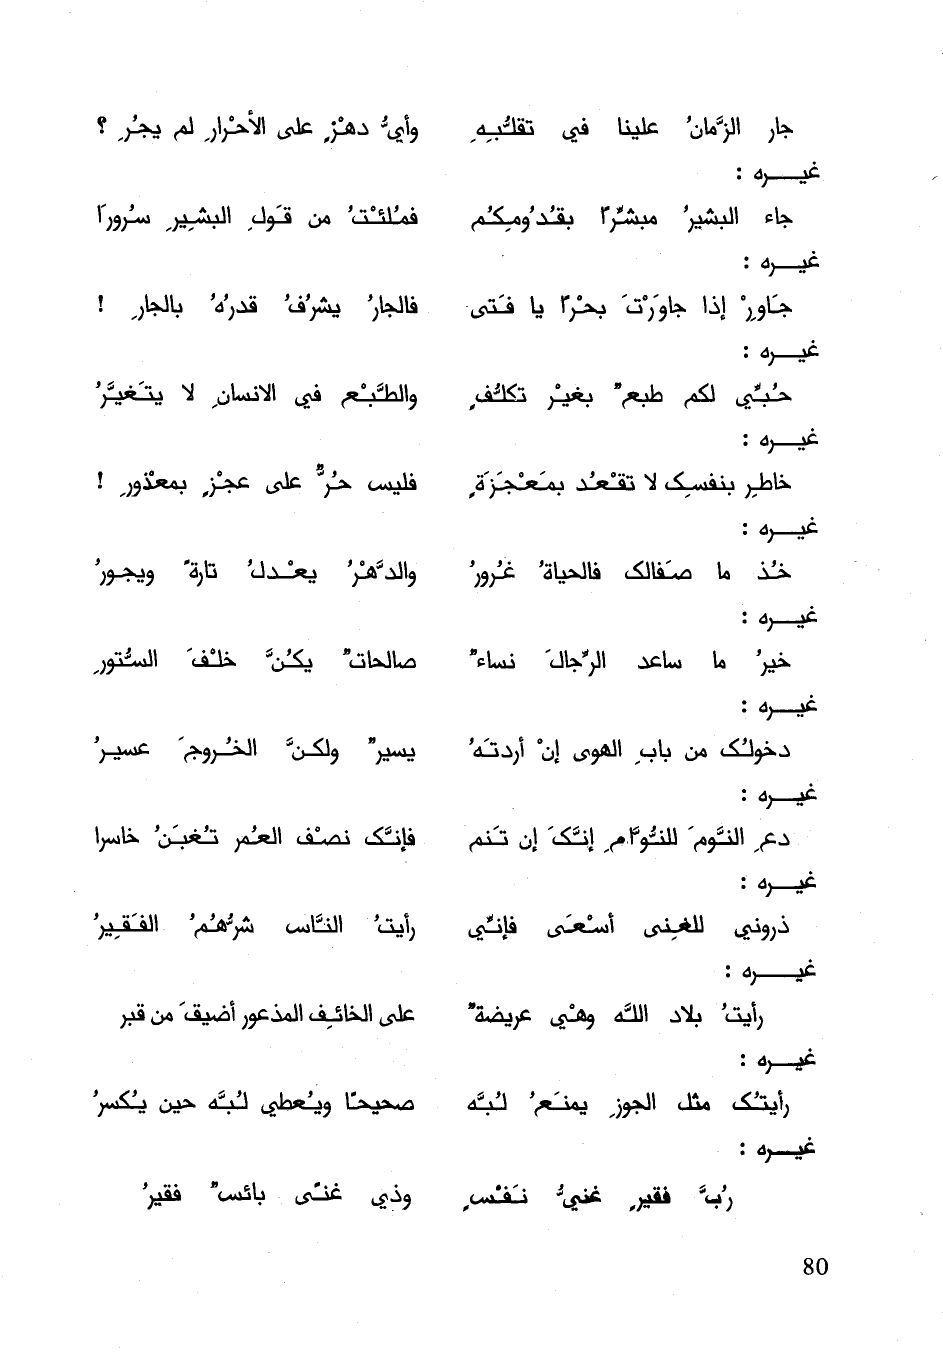 جار الزَّمانُ علينا في تقلُّبِهِ وأيُّ دهْرٍ على الأحْرارِ لم يجُرِ ؟
غيـــره :
جاء البشيرُ مبشِّرًا بقُدُومِكُم فمُلئْتُ من قَولِ البشِيرِ سُرورًا
غيـــره :
جَاوِرْ إذا جاوَرْتَ بحْرًا يا فَتى فالجارُ يشرُفُ قدرُهُ بالجارِ !
غيـــره :
حُبِّي لكم طبعٌ بغيْرِ تكلُّفٍ والطَّبْع في الانسانِ لا يتَغيَّرُ
غيـــره :
خاطر بنفسِك لا تقْعُد بمَعْجَزَةٍ فليس حُرٌّ على عجْزٍ بمعذورِ !
غيـــره :
خُذ ما صفَالك فالحياةُ غُرورُ والدَّهْرُ يعْدلُ تارةً ويجورُ
غيـــره :
خيرُ ما ساعد الرِّجالَ نساءٌ صالحاتٌ يكُنَّ خلْفَ السُّتورِ
غيـــره :
دخولُك من بابِ الهوى إنْ أردتَهُ يسيرٌ ولكنَّ الخُروجَ عسيرُ
غيـــره :
دعِ النَّومَ للنُّوَّامِ إنَّكَ إن تَنم فإنَّك نصْف العُمر تُغبَنُ خاسرا
غيـــره :
ذروني للغِنى أسْعَى فإنِّي رأيتُ النَّاس شرُّهُمُ الفَقِيرُ
غيـــره :
رأيتُ بلاد اللَّه وهْي عريضةٌ على الخائِف المذعور أضيقَ من قبر
غيـــره :
رأيتُك مثل الجوزِ يمنَعُ لُبَّه صحيحًا ويُعطي لُبَّه حين يُكسرُ
غيـــره :
رُبَّ فقيرٍ غنيُّ نَفْسٍ وذي غنًى بائسٌ فقيرُ
80